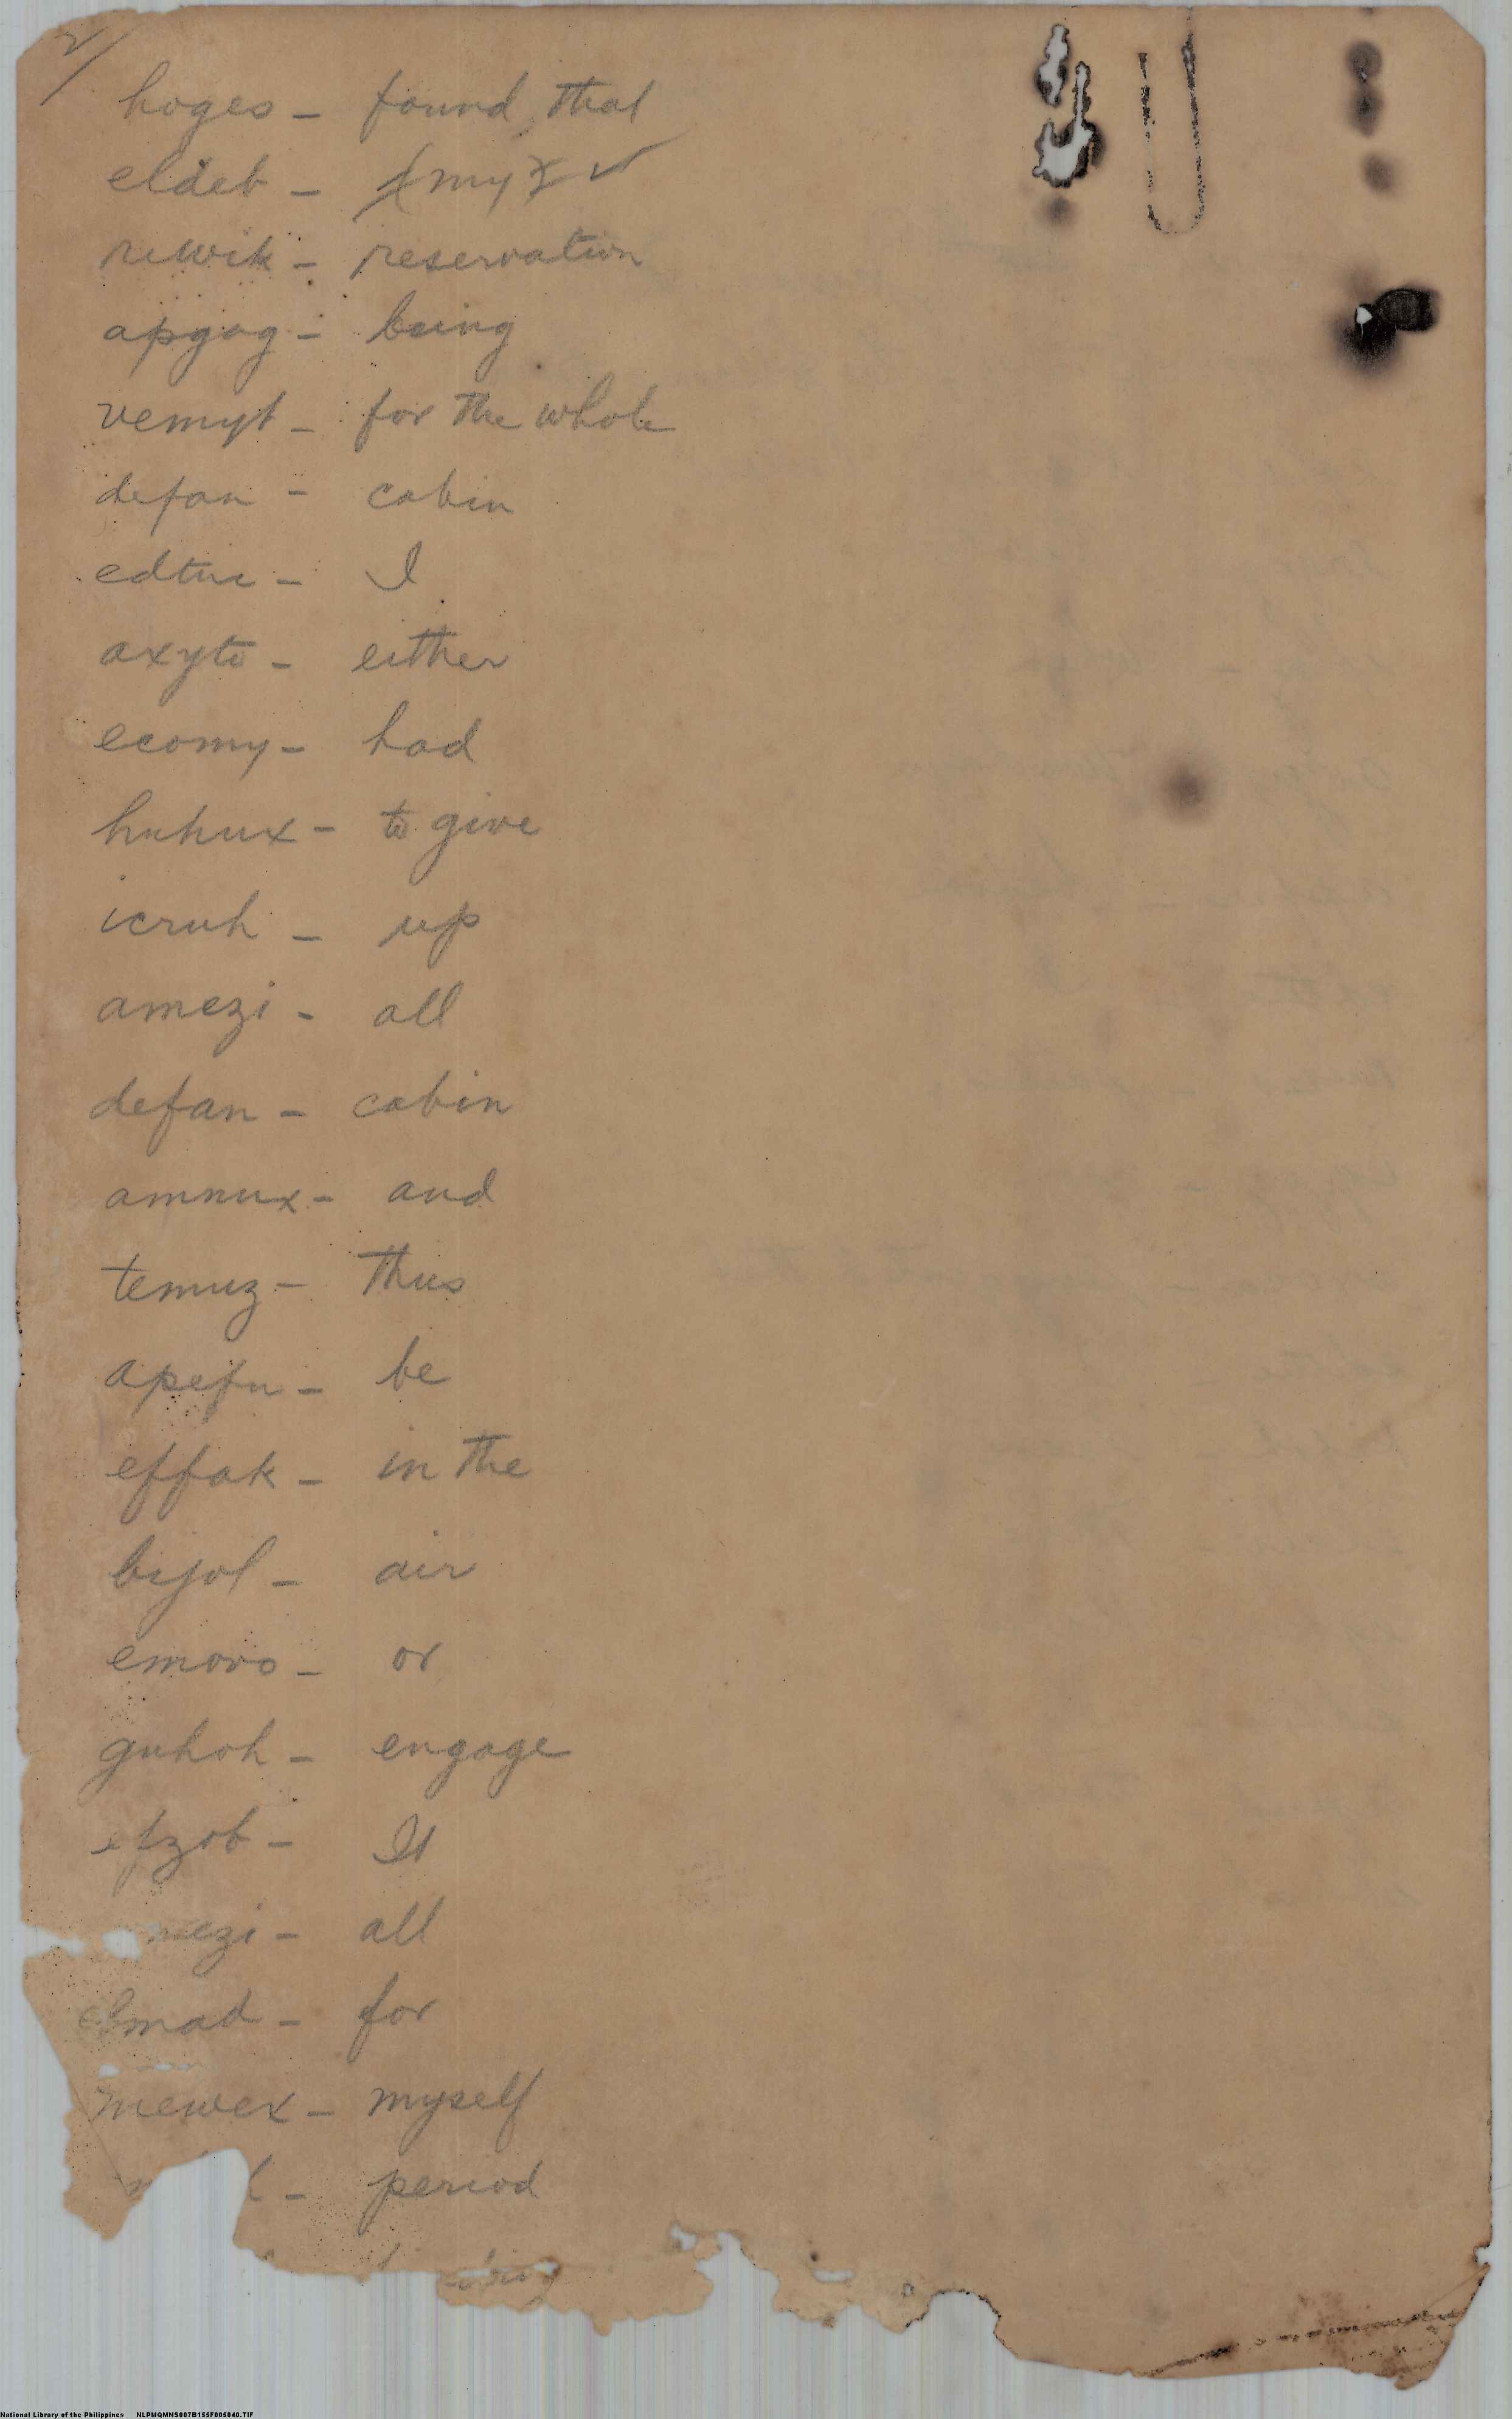 2/
hoges - found, that
eldeb - (my) ✓
ruwik - reservation
apgog - being
vemyt - for the whole
defan - cabin
edtuc - I
axyto - either
ecomy - had
huhux - to give
icruh - up
amezi - all
defan - cabin
amnux - and
temuz - thus
apefu - be
effak - in the
bijol - air
emovo - or
guhoh - engage
efzob - It
mezi - all
elmad - for
mewex - myself
- period
National Library of the Philippines NLPMQMNS007B155F005040.TIF